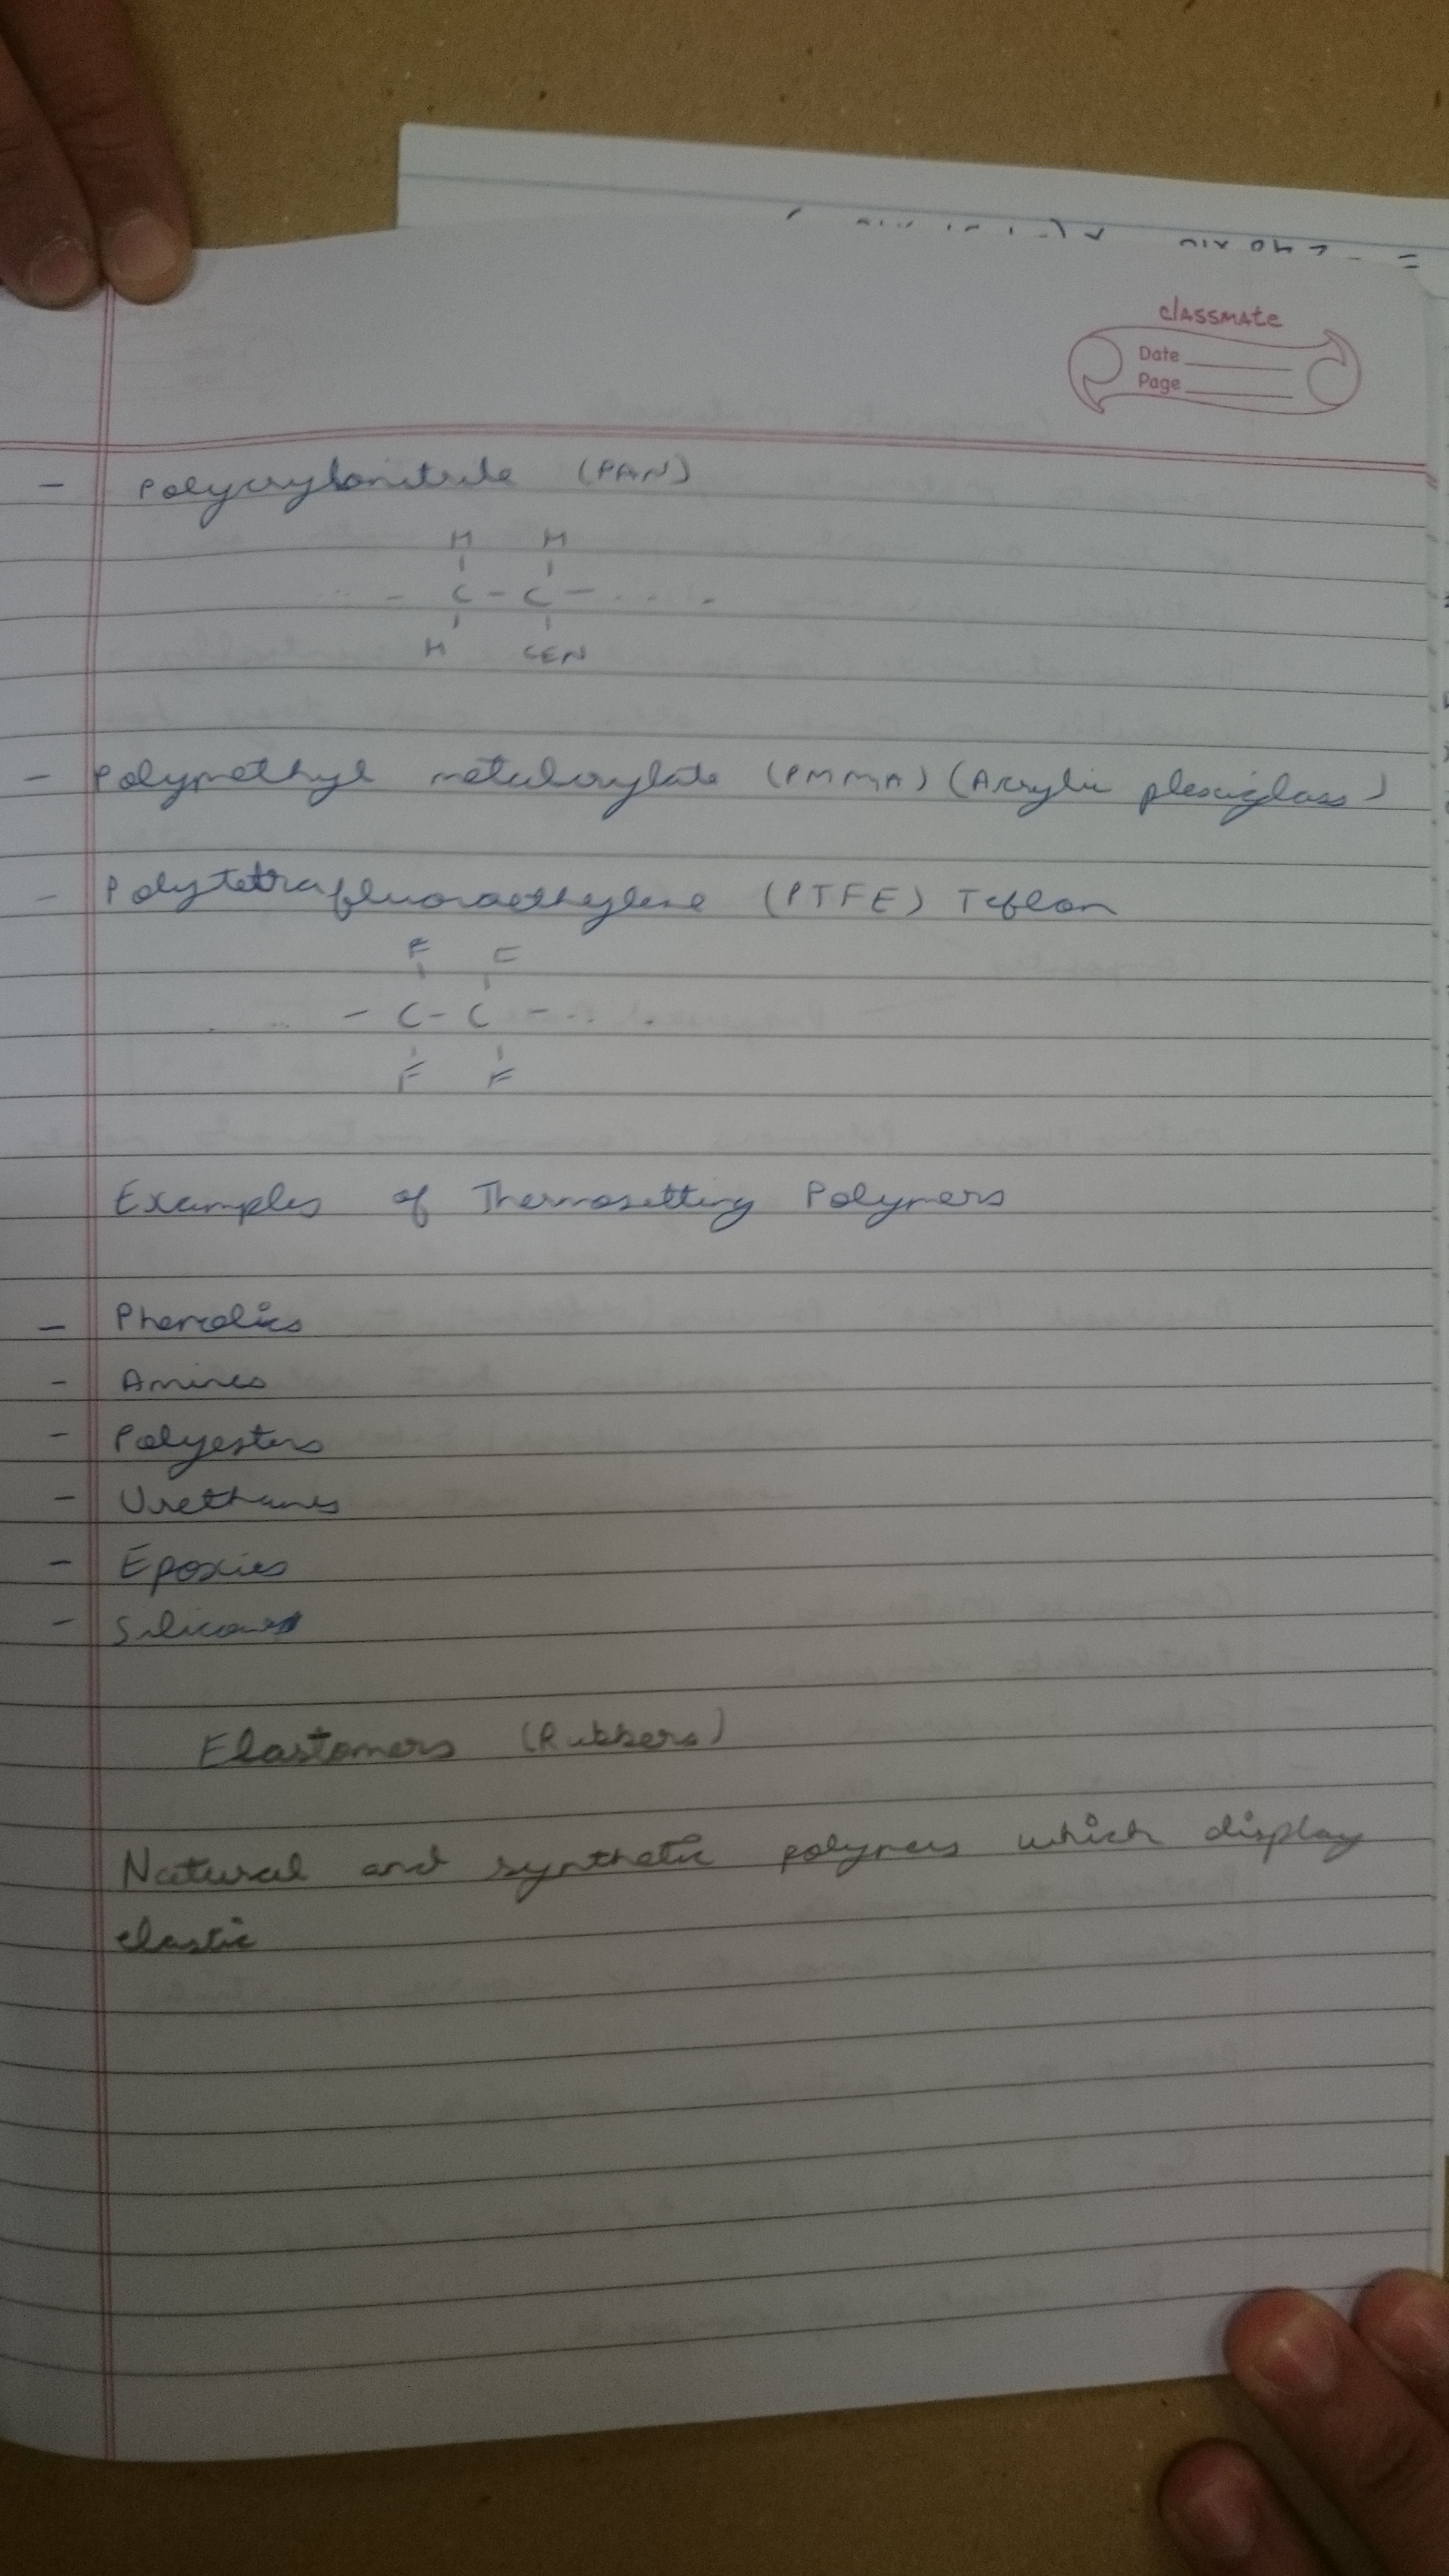 classmate
Date
Page
- Polycrylonitrile (PAN)
H H
- C - C - .....
H C≡N
- Polymethyl metacrylate (PMMA) (Acrylic plexiglass)
- Polytetrafluoroethylene (PTFE) Teflon
F F
- C - C - ....
F F
Examples of Thermosetting Polymers
- Phenolics
- Amines
- Polyesters
- Urethanes
- Epoxies
- Silicones
Elastomers (Rubbers)
Natural and synthetic polymers which display
elastic